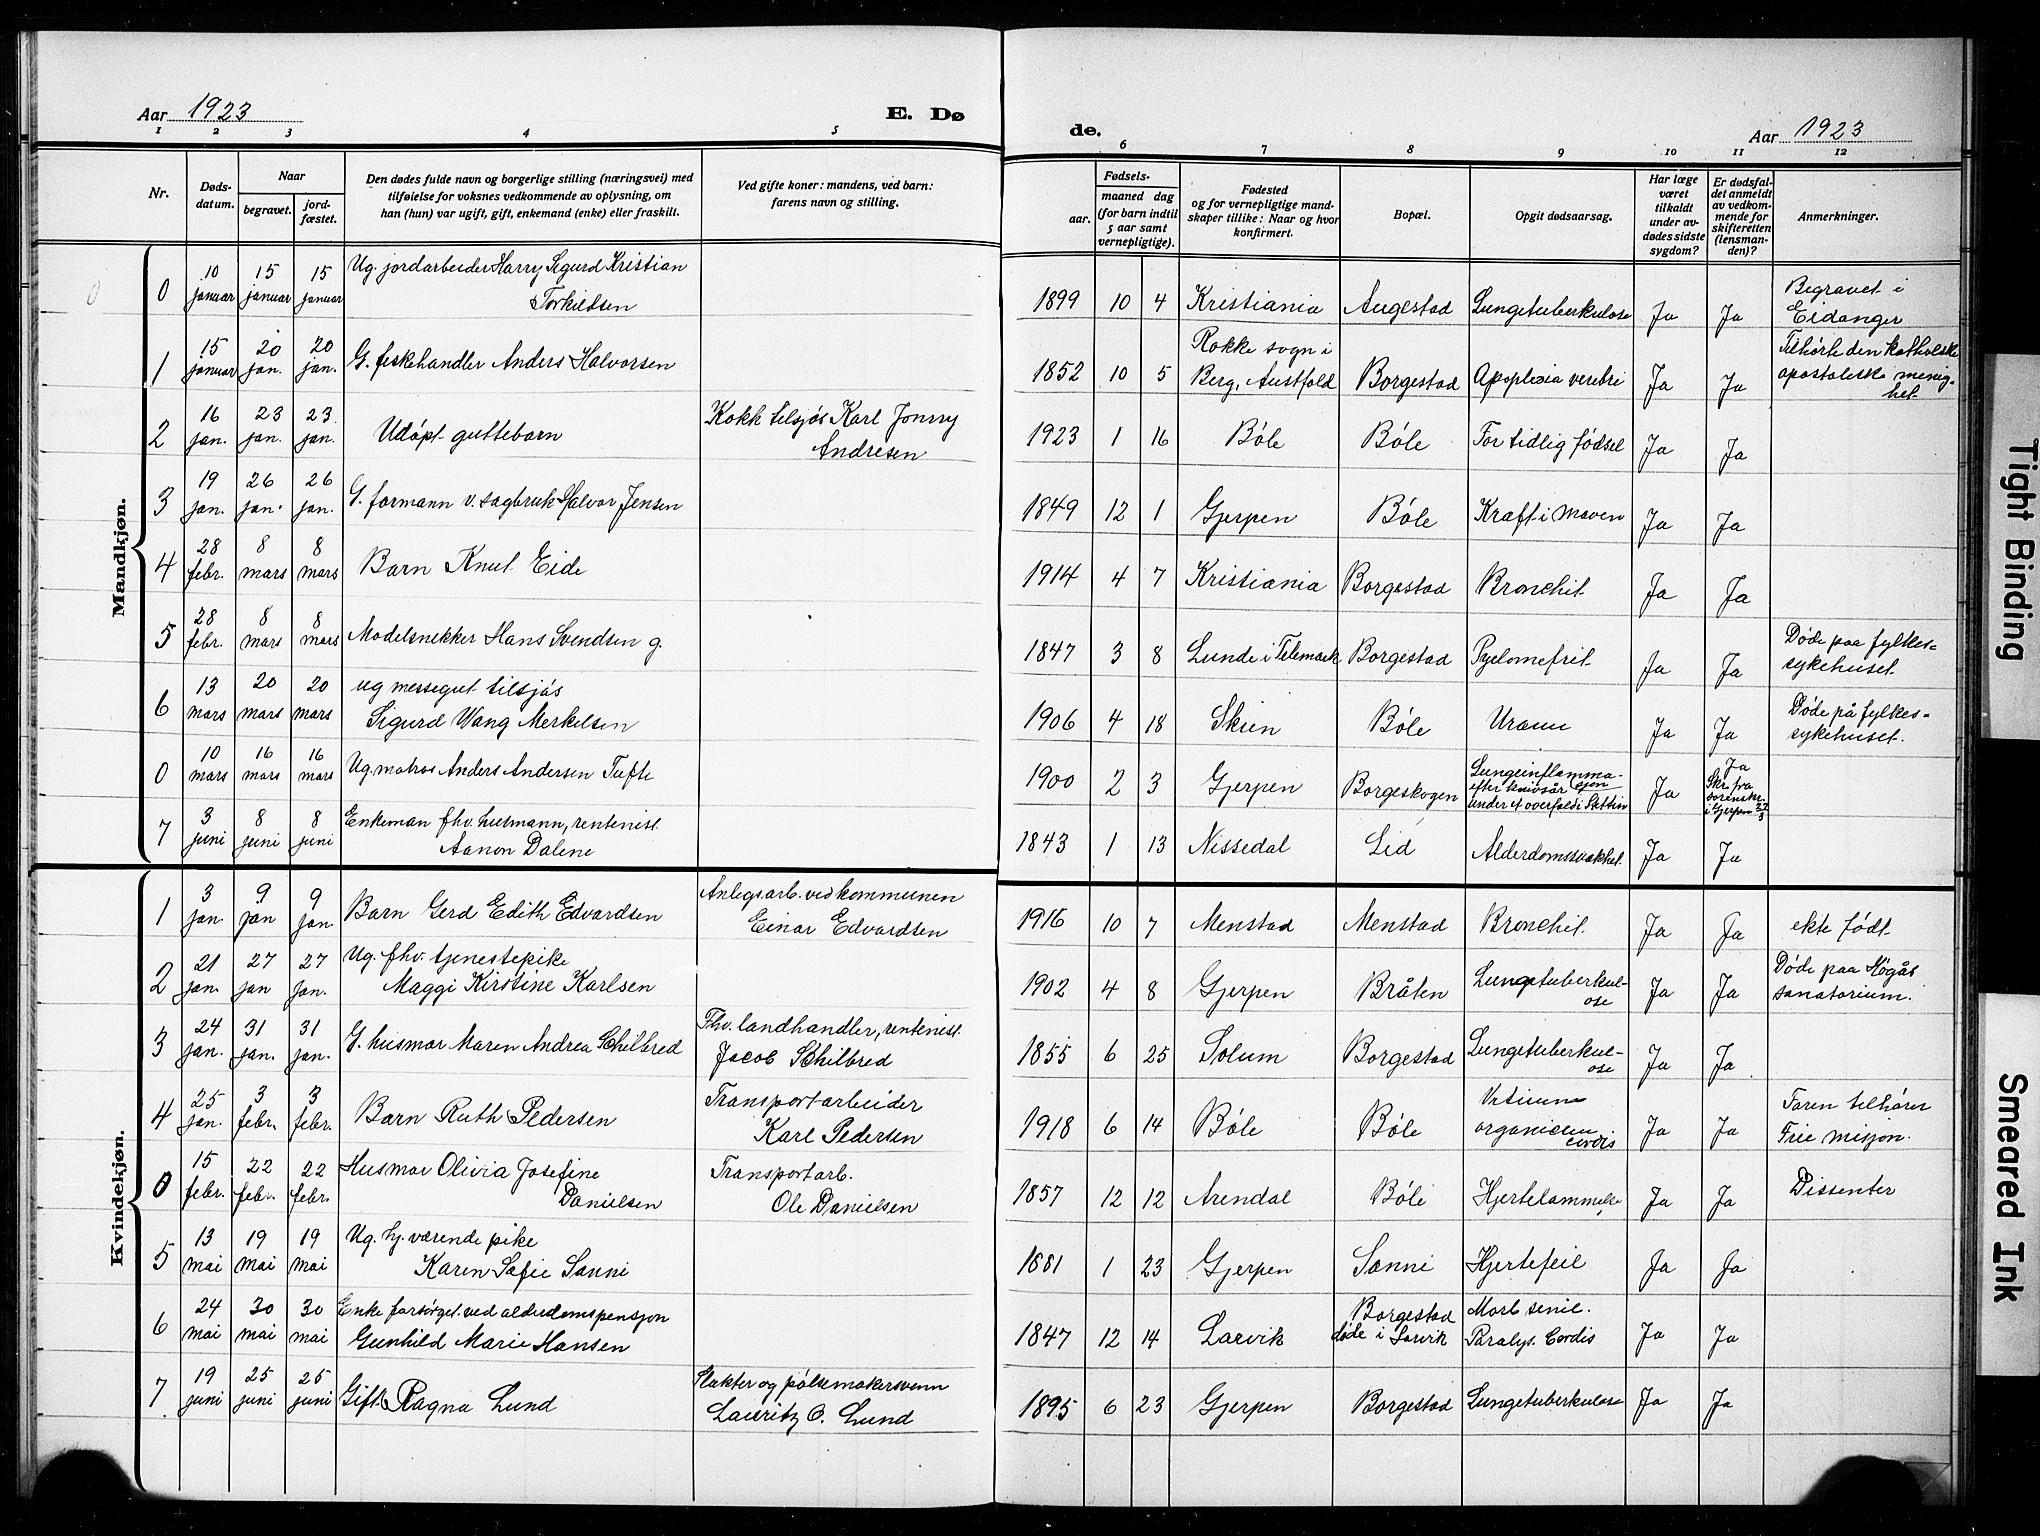 Aar 1923
E. Dø
de.
Aar 1923
1 2 3 4 5 6 7 8 9 10 11 12
Nr.
Døds-
datum.
Naar
begravet.
jord-
fæstet.
Den dødes fulde navn og borgerlige stilling (næringsvei) med
tilføielse for voksnes vedkommende av oplysning, om
han (hun) var ugift, gift, enkemand (enke) eller fraskilt.
Ved gifte koner: mandens, ved barn:
farens navn og stilling.
Fødsels-
aar.
maaned dag
(for barn indtil
5 aar samt
vernepligtige).
Fødested
og for vernepligtige mand-
skaper tillike: Naar og hvor
konfirmert.
Bopæl.
Opgit dødsaarsag.
Har læge
været
tilkaldt
under av-
dødes sidste
sygdom?
Er dødsfal-
det anmeldt
av vedkom-
mende for
skifteretten
(lensman-
den)?
Anmerkninger.
Mandkjøn.
0 10 januar 15 januar 15 januar Ug. jordarbeider Harry Sigurd Kristian
Torkildsen 1899 10 4 Kristiania Augestad Lungetuberkulose Ja Ja Begravet i
Eidanger
1 15 januar 20 jan. 20 jan. G. fiskehandler Anders Halvorsen 1852 10 5 Rokke sogn i
Berg, Austfold Borgestad Apoplexia cerebri Ja Ja Tilhørte den katholske
apostoliske menig-
het
2 16 jan. 23 jan. 23 jan. Udøpt guttebarn Kokk tilsjøs Karl Jonny
Andresen 1923 1 16 Bøle Bøle For tidlig fødsel Ja Ja
3 19 jan. 26 jan. 26 jan. G. formann v. sagbruk Halvor Jensen 1849 12 1 Gjerpen Bøle Kræft i maven Ja Ja
4 28 febr. 8 mars 8 mars Barn Knut Eide 1914 4 7 Kristiania Borgestad Bronchit Ja Ja
5 28 febr. 8 mars 8 mars Modelsnekker Hans Svendsen g. 1847 3 8 Lunde i Telemark Borgestad Pyelonefrit Ja Ja Døde paa fylkes-
sykehuset.
6 13 mars 20 mars 20 mars ug messegut tilsjøs
Sigurd Wang Merkelsen 1906 4 18 Skien Bøle Uræmi Ja Ja Døde på fylkes-
sykehuset.
0 10 mars 16 mars 16 mars Ug. matros Anders Andersen Tufte 1900 2 3 Gjerpen Borgeskogen Lungeinflamma-
sjon
efter knivsår
under et overfald i Stettin Ja Ja
Skr. fra
sorenskr.
i Gjerpen 22/3
7 3 juni 8 juni 8 juni Enkeman fhv. husmann, rentenist
Aanon Dalene 1843 1 13 Nissedal Lid Alderdomssvakhet Ja Ja
Kvindekjøn.
1 3 jan. 9 jan 9 jan. Barn Gerd Edith Edvardsen Anlegsarb. ved kommunen
Einar Edvardsen 1916 10 7 Menstad Menstad Bronchit. Ja Ja ekte født
2 21 jan. 27 jan 27 jan. Ug. fhv. tjenestepike
Maggi Kirstine Karlsen 1902 4 8 Gjerpen Bråten Lungetuberkul-
ose Ja Ja Døde paa Høgås
sanatorium.
3 24 jan. 31 jan. 31 jan. G. husmor Maren Andrea Schilbred Fhv. landhandler, rentenist.
Jacob Schilbred 1855 6 25 Solum Borgestad Lungetuberkul-
ose Ja Ja
4 25 jan. 3 febr. 3 febr. Barn Ruth Pedersen Transportarbeider
Karl Pedersen 1918 6 14 Bøle Bøle Vitium
organicum
cordis Ja Ja Faren tilhører
Frie misjon.
0 15 febr. 22 febr. 22 febr. Husmor Olivia Josefine
Danielsen Transportarb.
Ole Danielsen 1857 12 12 Arendal Bøle Hjertelammelse Ja Ja Dissenter
5 13 mai 19 mai 19 mai Ug. hj. værende pike
Karen Sofie Sanni 1881 1 23 Gjerpen Sanni Hjertefeil Ja Ja
6 24 mai 30 mai 30 mai Enke forsørget ved alderdomspensjon
Gunhild Marie Hansen 1847 12 14 Larvik Borgestad
døde i Larvik Marb. senil.
Paralys. Cordis Ja Ja
7 19 juni 25 juni 25 juni Gift Ragna Lund Slakter og pølsemakersvenn
Lauritz O. Lund 1895 6 23 Gjerpen Borgestad Lungetuberkulose Ja Ja
Tight Binding
Smeared Ink